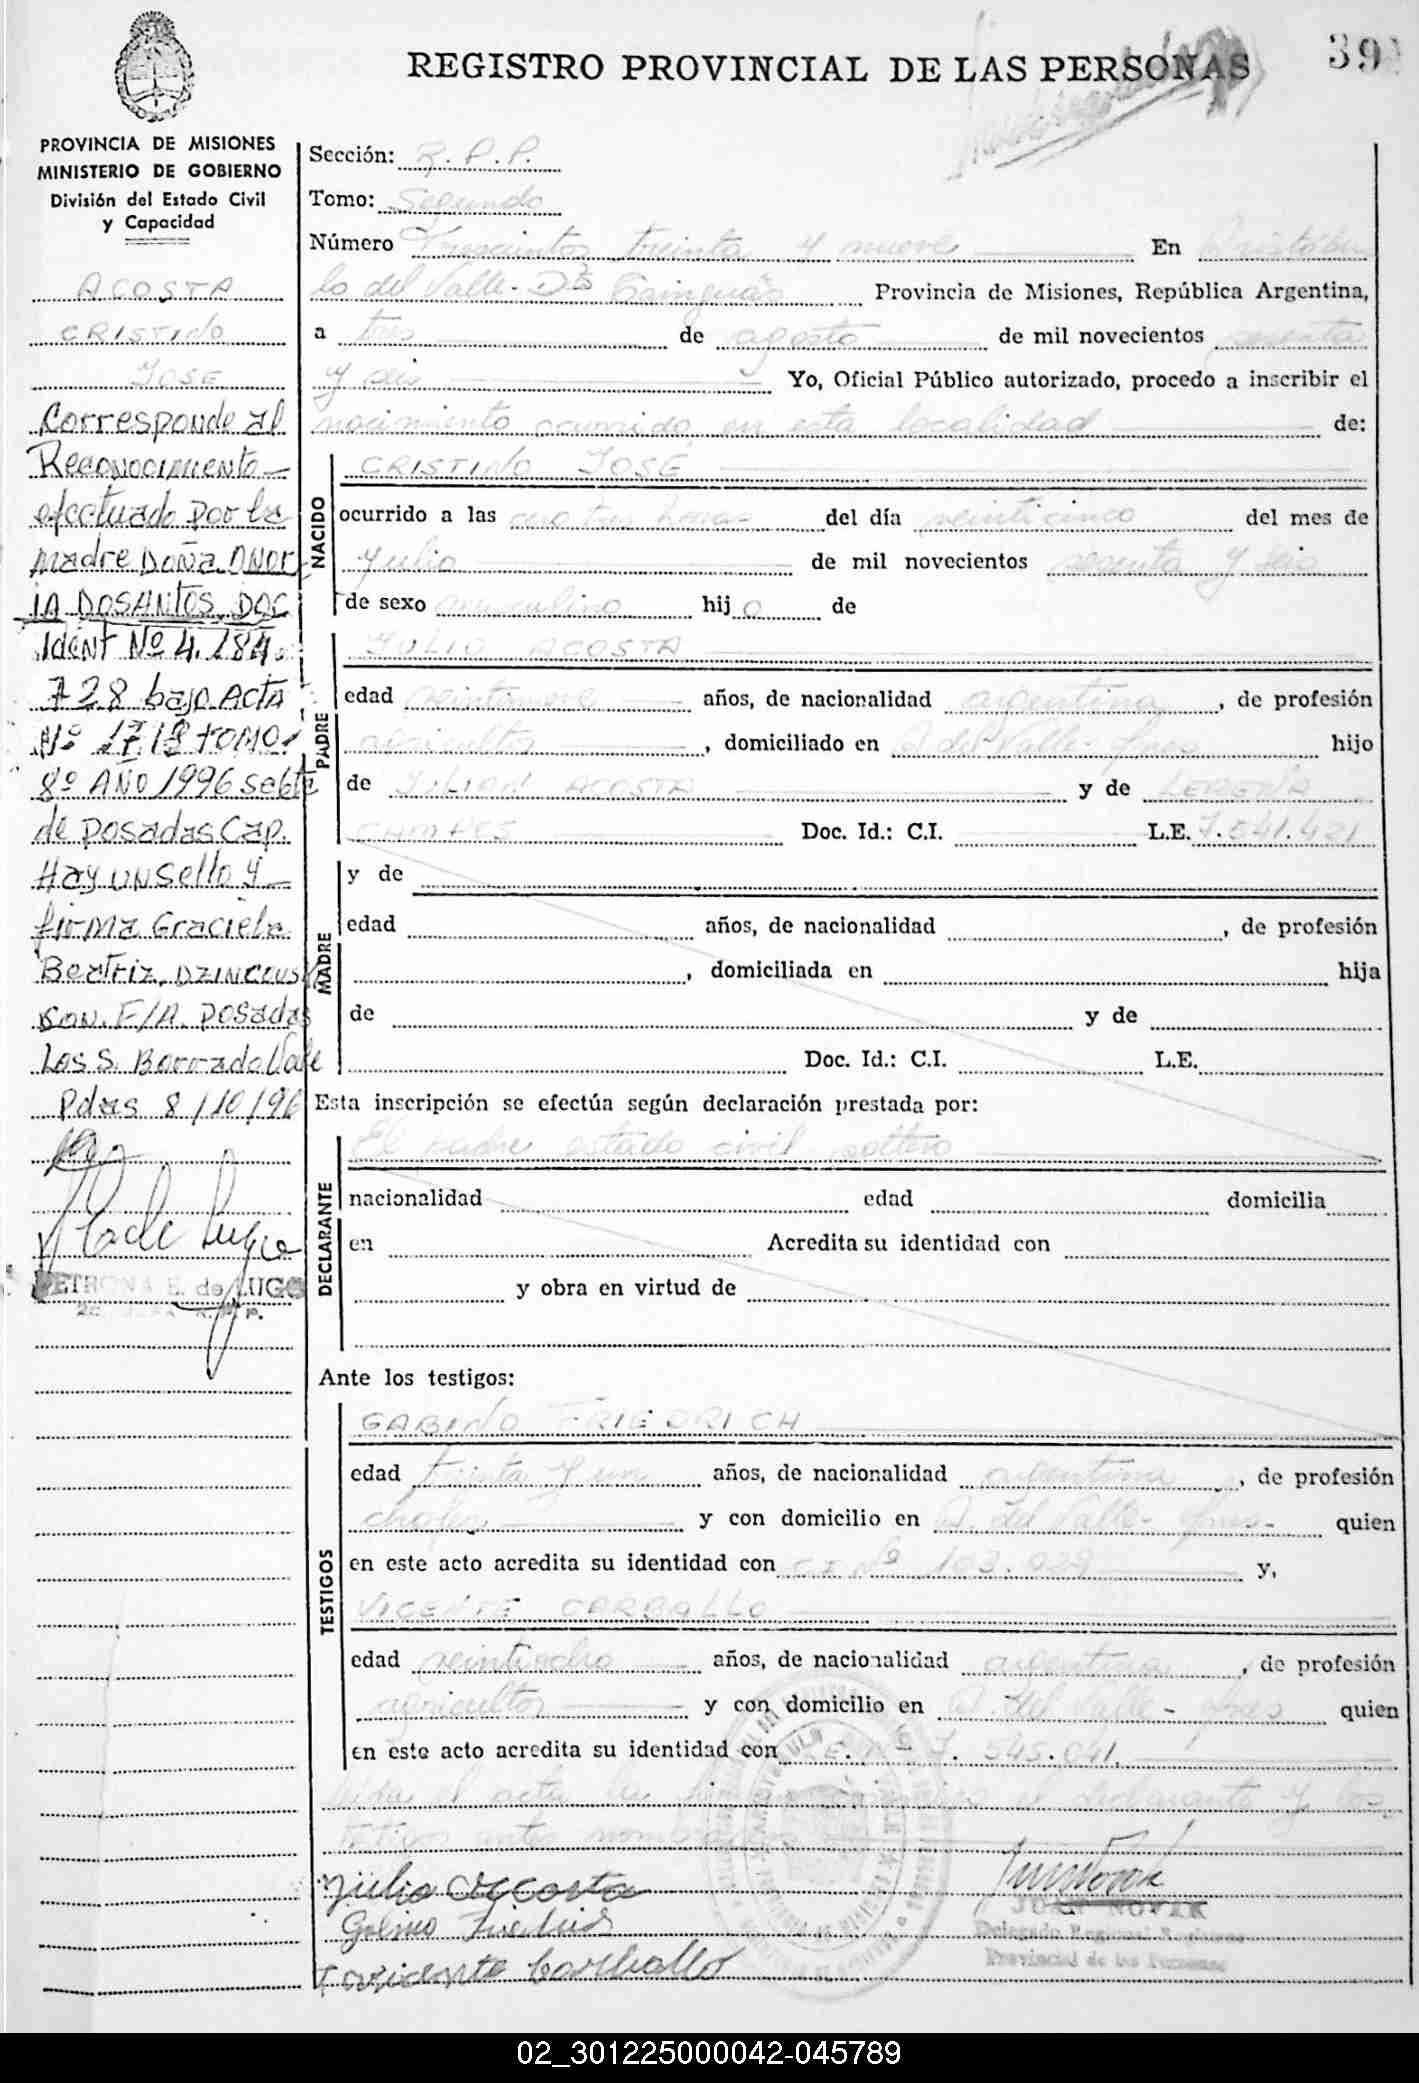 REGISTRO PROVINCIAL DE LAS PERSONAS
39
PROVINCIA DE MISIONES
MINISTERIO DE GOBIERNO
División del Estado Civil
y Capacidad
ACOSTA
CRISTINO
JOSE
Corresponde al
Reconocimiento
efectuado por la
Madre Doña ONOR
IA DOSANTOS. DOC
Ident Nº 4.184.
728 bajo Acta
Nº 1718 tomo
8º AÑO 1996
de Posadas Cap.
Hay un sello y
firma Graciela
Beatriz
F/A. Posadas
Los S. Borrado Vale
Pdas 8/10/96
PETRONA E. de LUGO
R.P.P.
Sección: R.P.P.
Tomo: Segundo
Número Trescientos treinta y nueve En Cristóbu
lo del Valle - Dto Cainguás Provincia de Misiones, República Argentina,
a tres de agosto de mil novecientos sesenta
y seis Yo, Oficial Público autorizado, procedo a inscribir el
nacimiento ocurrido en esta localidad de:
NACIDO
CRISTINO JOSÉ
ocurrido a las cero tres horas del día veinticinco del mes de
Julio de mil novecientos sesenta y seis
de sexo masculino hijo de
PADRE
JULIO ACOSTA
edad veintinueve años, de nacionalidad argentina, de profesión
agricultor, domiciliado en A. del Valle - Mnes hijo
de JULIAN ACOSTA y de
Doc. Id.: C.I. L.E. 7.541.421
MADRE
y de
edad años, de nacionalidad , de profesión
, domiciliada en hija
de y de
Doc. Id.: C.I. L.E.
Esta inscripción se efectúa según declaración prestada por:
DECLARANTE
El padre estado civil soltero
nacionalidad edad domicilia
en Acredita su identidad con
y obra en virtud de
Ante los testigos:
TESTIGOS
GABINO FRIEDRICH
edad treinta y un años, de nacionalidad argentina, de profesión
chofer y con domicilio en A. del Valle - Mnes - quien
en este acto acredita su identidad con C.I. Nº 103.029 y,
VICENTE CARBALLO
edad veintiocho años, de nacionalidad argentina, de profesión
agricultor y con domicilio en A. del Valle - Mnes quien
en este acto acredita su identidad con L.E. Nº 7.545.041.
el acta la firman el declarante y los
testigos antes nombrados
Julio Accosta
Gabino Friedrich
Vicente Carballo
JUAN NOVAK
Delegado Regional Registro
Provincial de las Personas
02_301225000042-045789